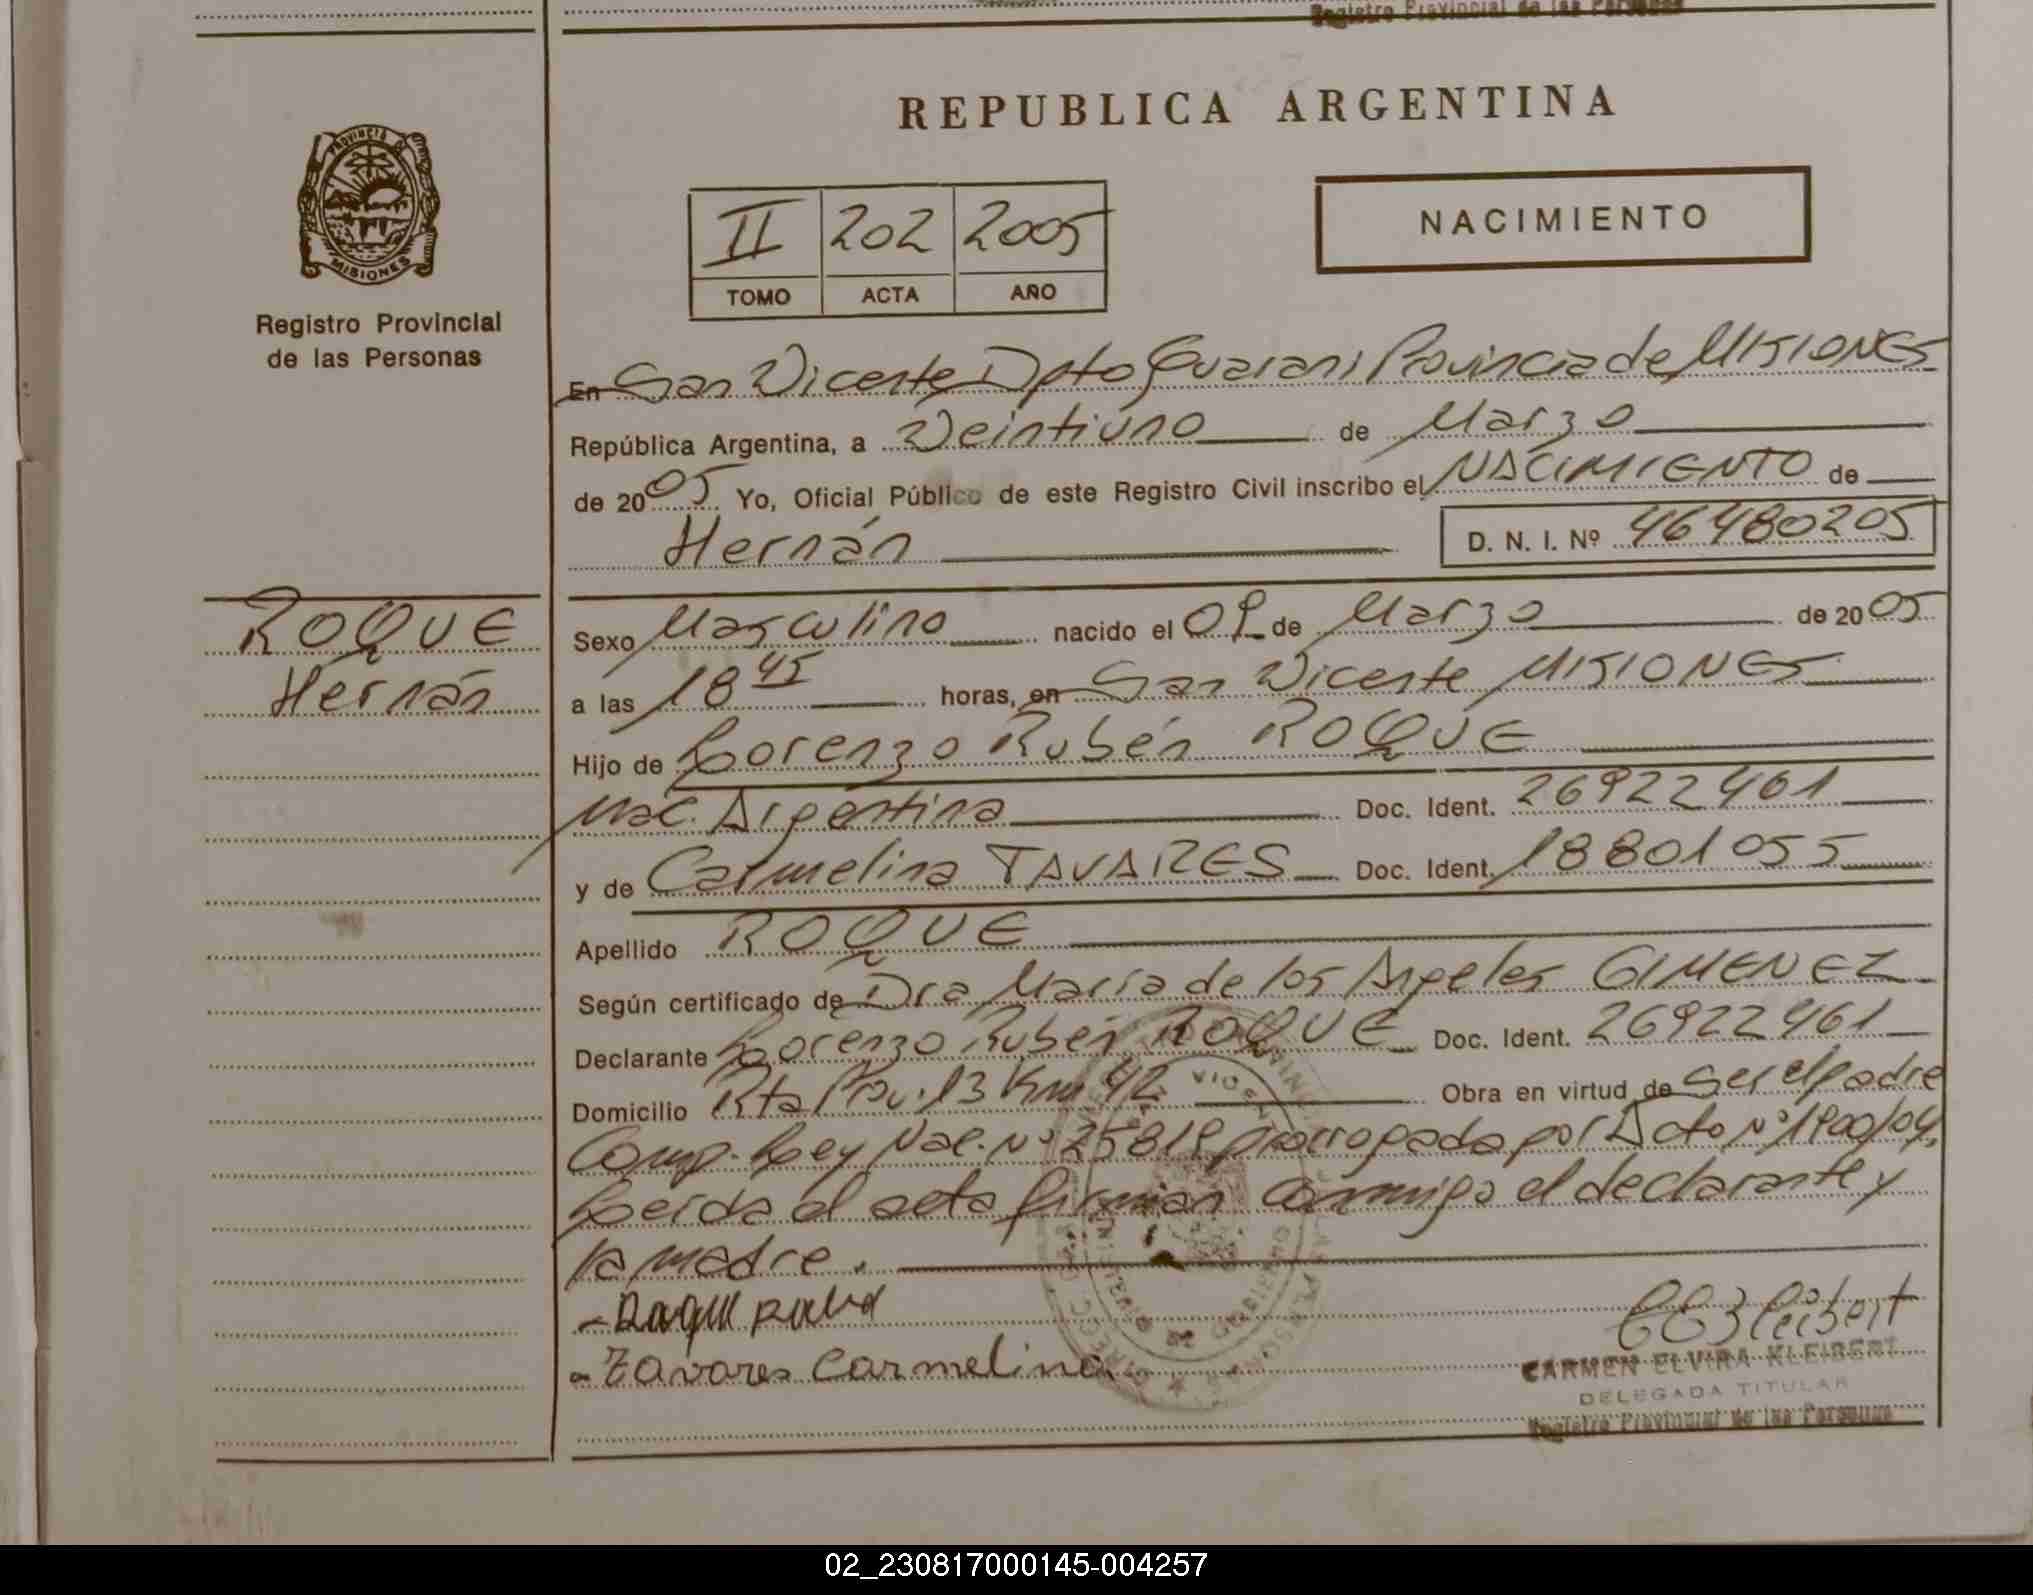 Registro Provincial de las Personas
REPUBLICA ARGENTINA
PROVINCIA DE
MISIONES
Registro Provincial
de las Personas
II 202 2005
TOMO ACTA AÑO
NACIMIENTO
En San Vicente Dpto Guaraní Provincia de MISIONES
República Argentina, a Veintiuno de Marzo
de 2005 Yo, Oficial Público de este Registro Civil inscribo el NACIMIENTO de
Hernán D. N. I. Nº 46480205
ROQUE
Hernán
Sexo Masculino nacido el 09 de Marzo de 2005
a las 18 45 horas, en San Vicente MISIONES
Hijo de Lorenzo Rubén ROQUE
Nac. Argentina Doc. Ident. 26922461
y de Carmelina TAVARES Doc. Ident. 18801055
Apellido ROQUE
Según certificado de Dra María de los Angeles GIMENEZ
Declarante Lorenzo Rubén ROQUE Doc. Ident. 26922461
Domicilio Rta Prov. 13 Km 42 Obra en virtud de Ser el padre
Comp. Ley Nac. Nº 25819 prorrogada por Dcto Nº 1900/04.
Leída el acta firman conmigo el declarante y
la madre.
- Roque
- Tavares Carmelina
CEKleibert
CARMEN ELVIRA KLEIBERT
DELEGADA TITULAR
Registro Provincial de las Personas
02_230817000145-004257